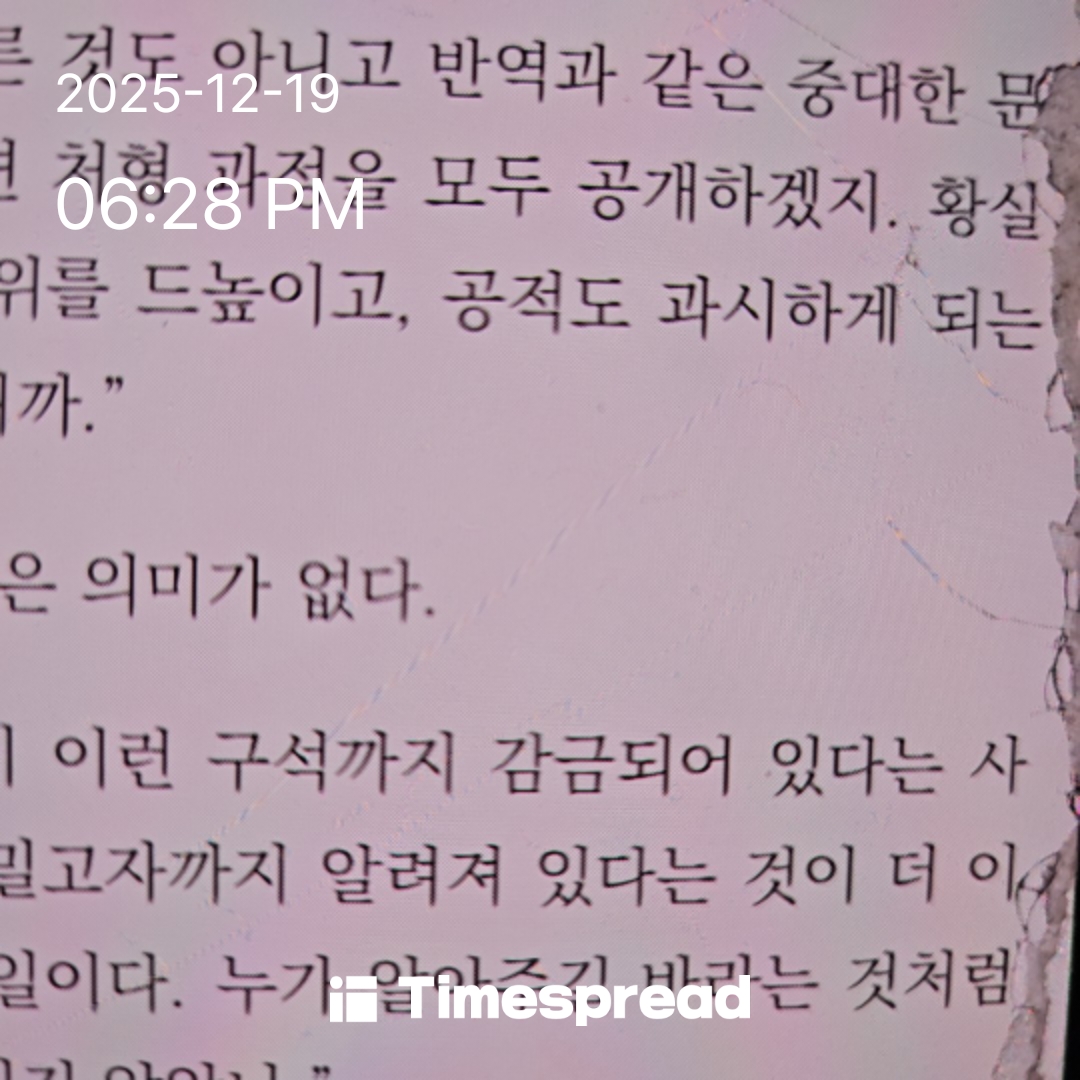 른 것도 아니고 반역과 같은 중대한 문
2025-12-19
면 처형 과정을 모두 공개하겠지. 황실
06:28 PM
위를 드높이고, 공적도 과시하게 되는
까.”
은 의미가 없다.
이런 구석까지 감금되어 있다는 사
밀고자까지 알려져 있다는 것이 더 이
일이다. 누가 알아주길 바라는 것처럼
Timespread